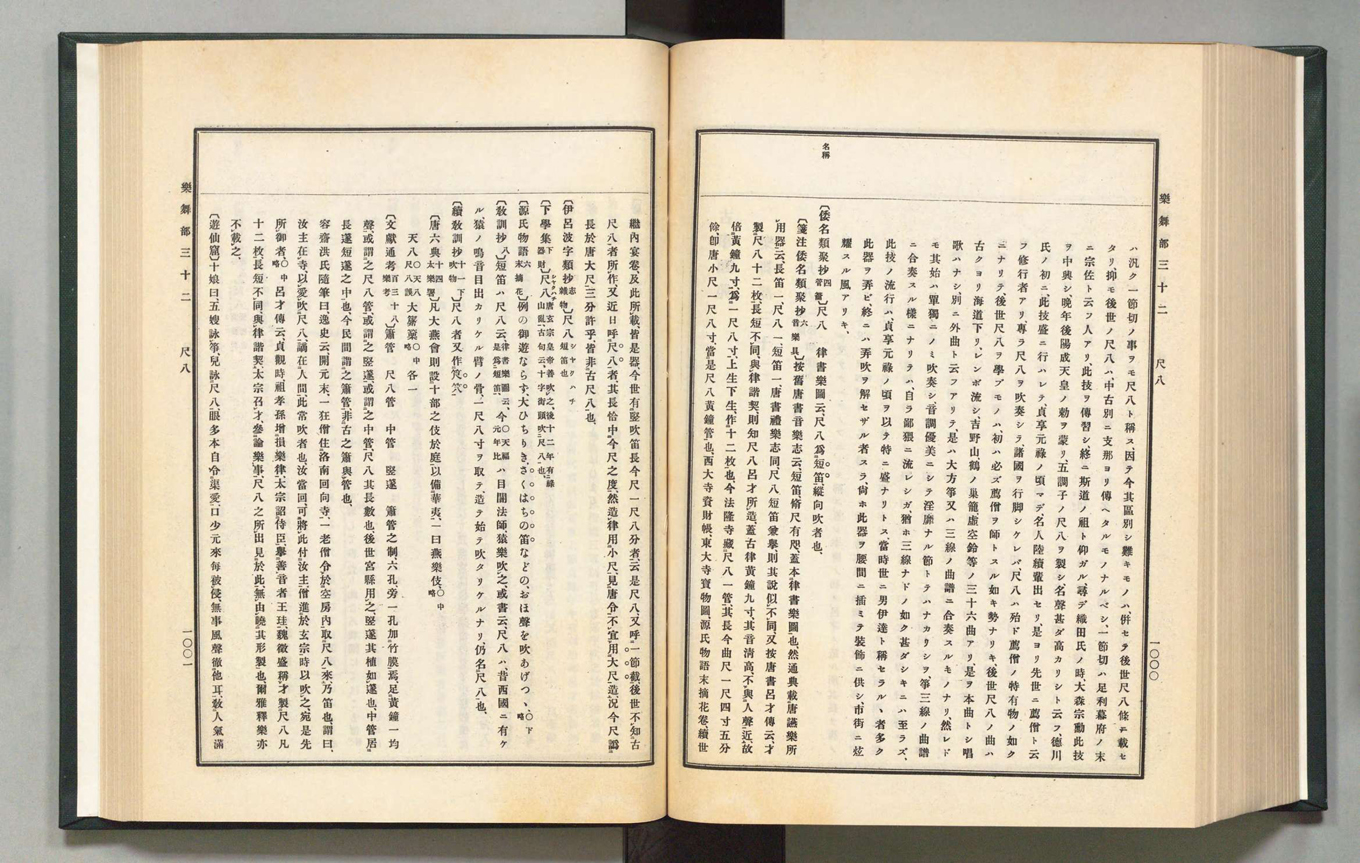 樂舞部三十二 尺八
一〇〇〇
ハ汎ク一節切ノ事ヲモ尺八ト稱ス因テ今其區別シ難キモノハ併セテ後世尺八條ニ載セ
タリ抑モ後世ノ尺八ハ中古別ニ支那ヨリ傳ヘタルモノナルベシ、一節切ハ足利幕府ノ末
ニ宗佐ト云フ人アリ、此技ヲ傳習シ、終ニ斯道ノ祖ト仰ガル、尋デ織田氏ノ時、大森宗勳此技
ヲ中興シ、晩年後陽成天皇ノ勅ヲ蒙リ、五調子ノ尺八ヲ製シ、名聲甚ダ高カリシト云フ、德川
氏ノ初ニ此技盛ニ行ハレテ、貞享元祿ノ頃マデ、名人陸續輩出セリ、是ヨリ先世ニ薦僧ト云
フ修行者アリ、專ラ尺八ヲ吹奏シテ、諸國ヲ行脚シケレバ、尺八ハ殆ド薦僧ノ特有物ノ如ク
ニナリテ、後世尺八ヲ學ブモノハ、初ハ必ズ薦僧ヲ師トスル如キ勢ナリキ、後世尺八ノ曲ハ
古クヨリ海道下リ、レンボ流シ、吉野山、鶴ノ巢籠、虛空鈴等ノ三十六曲アリ、是ヲ本曲トシ、唱
歌ハナシ、別ニ外曲ト云フアリテ、是ハ大方箏又ハ三線ノ曲譜ニ合奏スルモノナリ、然レド
モ其始ハ單獨ニノミ吹奏シ、音調優美ニシテ淫靡ナル節トテハナカリシヲ、箏三線ノ曲譜
ニ合奏スル樣ニナリテハ、自ラ鄙猥ニ流レシガ、猶ホ三線ナドノ如ク甚ダシキニハ至ラズ、
此技ノ流行ハ、貞享元祿ノ頃ヲ以テ特ニ盛ナリトス、當時世ニ男伊達ト稱セラルヽ者多ク
此器ヲ弄ビ、終ニハ弄吹ヲ解セザル者スラ尙ホ此器ヲ腰間ニ插ミテ裝飾ニ供シ、市街ニ炫
耀スル風アリキ、
名稱
〔倭名類聚抄 四 管籥〕尺八 律書樂圖云、尺八爲短笛、縱向吹者也、
〔箋注倭名類聚抄 六 音樂具〕按舊唐書音樂志云、短笛、脩尺有咫、蓋本律書樂圖也、然通典載唐讌樂所
用器云、長笛一、尺八一、短笛一、唐書禮樂志同、尺八短笛兼擧、則其說似不同、又按唐書呂才傳云、才
製尺八十二枚、長短不同、與律諧契、則知尺八呂才所造、蓋古律黃鐘九寸、其音淸高、不與人聲近、故
倍黃鐘九寸爲一尺八寸、上生下生、作十二枚也、今法隆寺藏尺八一管、其長今曲尺一尺四寸五分
餘、卽唐小尺一尺八寸、當是尺八黃鐘管也、西大寺資財帳、東大寺寶物圖、源氏物語末摘花卷、續世
繼內宴卷及此所載、皆是器、今世有竪吹笛、長今尺一尺八分者云是尺八、又呼一節截、後世不知古
尺八者所作、又近日呼尺八者、其長恰中今尺之度、然造律用小尺、見唐令、不宜用大尺造、況今尺譌
長於唐大尺三分許乎、皆非古尺八也、
〔伊呂波字類抄 志 雜物〕尺八 シヤクハチ 短笛也
〔下學集 下 器財〕尺八 シヤクハチ 唐玄宗皇帝善吹之、後十二年有錄山亂、古句云、十字街頭吹尺八也、
〔源氏物語 六 末摘花〕例の御遊ならず、大ひちりき、さくはちの笛などの、おほ聲を吹あげつゝ、〇下略
〔敎訓抄 八〕短笛ハ尺八云、律書樂圖云、是爲短笛、今〇天福元年比ハ目闇法師猿樂吹之、或書云、尺八ハ、昔西國ニ有ケ
ル、猿ノ鳴音目出カリケル臂ノ骨一尺八寸ヲ取テ、造テ始テ吹タリケルナリ、仍名尺八也、
〔續敎訓抄 十一 吹物〕尺八者又作笂笂、
〔唐六典 十四 太樂署〕凡大燕會、則設十部之伎於庭、以備華夷、一曰燕樂伎、〇中略
天八〇天八、尺八誤、大篳篥〇中略各一
〔文獻通考 百三十八 樂考〕簫管 尺八管 中管 竪邃 簫管之制、六孔、旁一孔、加竹膜焉、足黃鐘一均
聲、或謂之尺八管、或謂之竪邃、或謂之中管、尺八其長數也、後世宮縣用之、竪邃其植如邃也、中管居
長邃短邃之中也、今民間謂之簫管、非古之簫與管也、
容齋洪氏隨筆曰、逸史云、開元末、一狂僧住洛南回向寺、一老僧令於空房內取尺八來、乃笛也、謂曰、
汝主在寺、以愛吹尺八、謫在人間、此常吹者也、汝當回可將此付汝主、僧進於玄宗、時以吹之、宛是先
所御者〇中略呂才傳云、貞觀時、祖孝孫增損樂律、太宗詔侍臣、擧善音者、王珪魏徵盛稱才製尺八、凡
十二枚、長短不同、與律諧契、太宗召才、參論樂事、尺八之所出見於此、無由曉其形製也、爾雅釋樂亦
不載之、
〔遊仙窟〕十娘曰、五嫂詠箏、兒詠尺八、眼多本自令渠愛、口少元來每被侵、無事風聲徹他耳、敎人氣滿
樂舞部三十二 尺八
一〇〇一